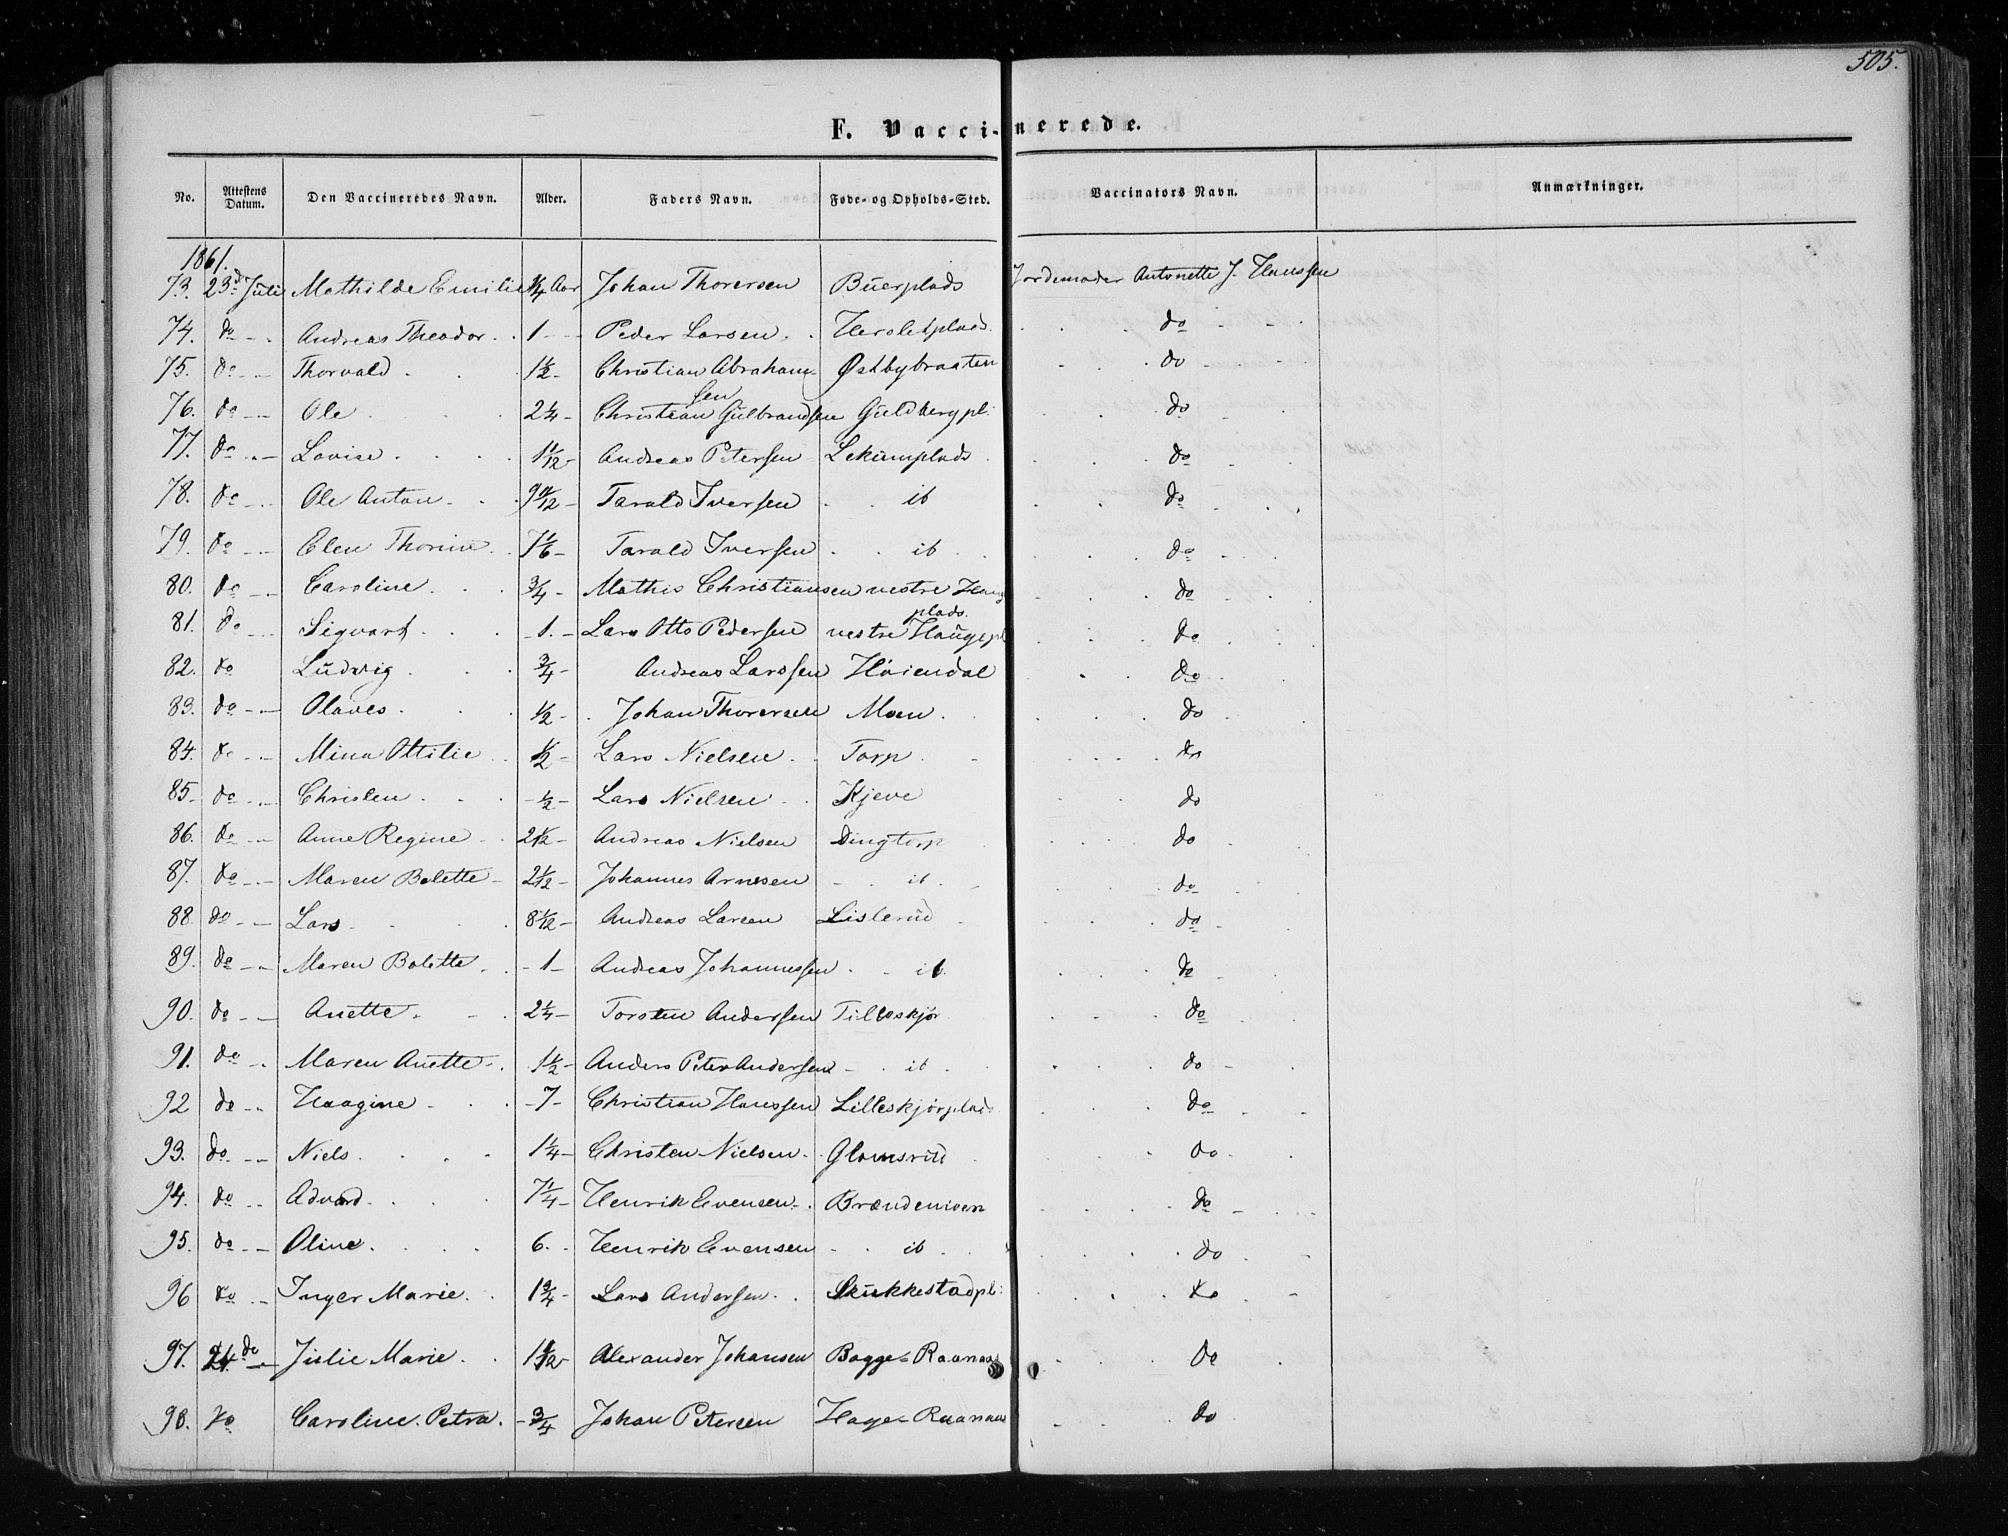 505.
F. Vaccinerede.
No. Attestens Datum. Den Vaccineredes Navn. Alder. Faders Navn. Føde- og Opholds-Sted. Vaccinators Navn. Anmærkninger.
1861.
73. 23d Juli Mathilde Emilie 1/4 Aar Johan Thorersen Buerplads Jordemoder Antonette J. Hanssen
74. do Andreas Theodor 1 Peder Larsen plads do
75. do Thorvald 1 1/2 Christian Abraham- Østbybraaten do
sen
76. do Ole 2 1/4 Christian Gulbrandsen Guldbergpl: do
77. do Lovise 1 1/12 Andreas Petersen Lekumplads do
78. do Ole Anton 9 Tarald Iversen ib do
79. do Elen Thorine 7 1/6 Tarald Iversen ib do
80. do Caroline 3/4 Mathis Christiansen vestre Haug do
plads.
81. do Sigvart 1. Lars Otto Pedersen vestre Haugepl do
82. do Ludvig 3/4 Andreas Larssen Høiendal do
83. do Olaves 1/2 Johan Thorersen Moen do
84. do Mina Ottilie 1/2 Lars Nielsen Torp do
85. do Christen 1/2 Lars Nielsen Kjeve do
86. do Anne Regine 2 1/2 Andreas Nielsen Dingtorp do
87. do Maren Bolette 2 1/12 Johannes Arnesen ib do
88. do Lars 8 1/12 Andreas Larsen Lislerud do
89. do Maren Bolette 1 Andreas Johannessen ib. do
90. do Anette 2 1/4 Torsten Andersen Lilleskjør do
91. do Maren Anette 1 1/2 Anders Peter Andersen ib do
92 do Haagine 7 Christian Hanssen Lilleskjørplads do
93. do Niels 1 1/4 Christen Nielsen Glomsrud do
94. do Edvard 7 1/4 Henrik Evensen Brændemoen do
95. do Oline 6. Henrik Evensen ib do
96 do Inger Marie 1 3/4 Lars Andersen Skukkestadpl: do
97. 24 do Julie Marie 1 Alexander Johansen Bagge=Raanaas do
98. do Caroline Petra 3/4 Johan Petersen Hage=Raanaas do